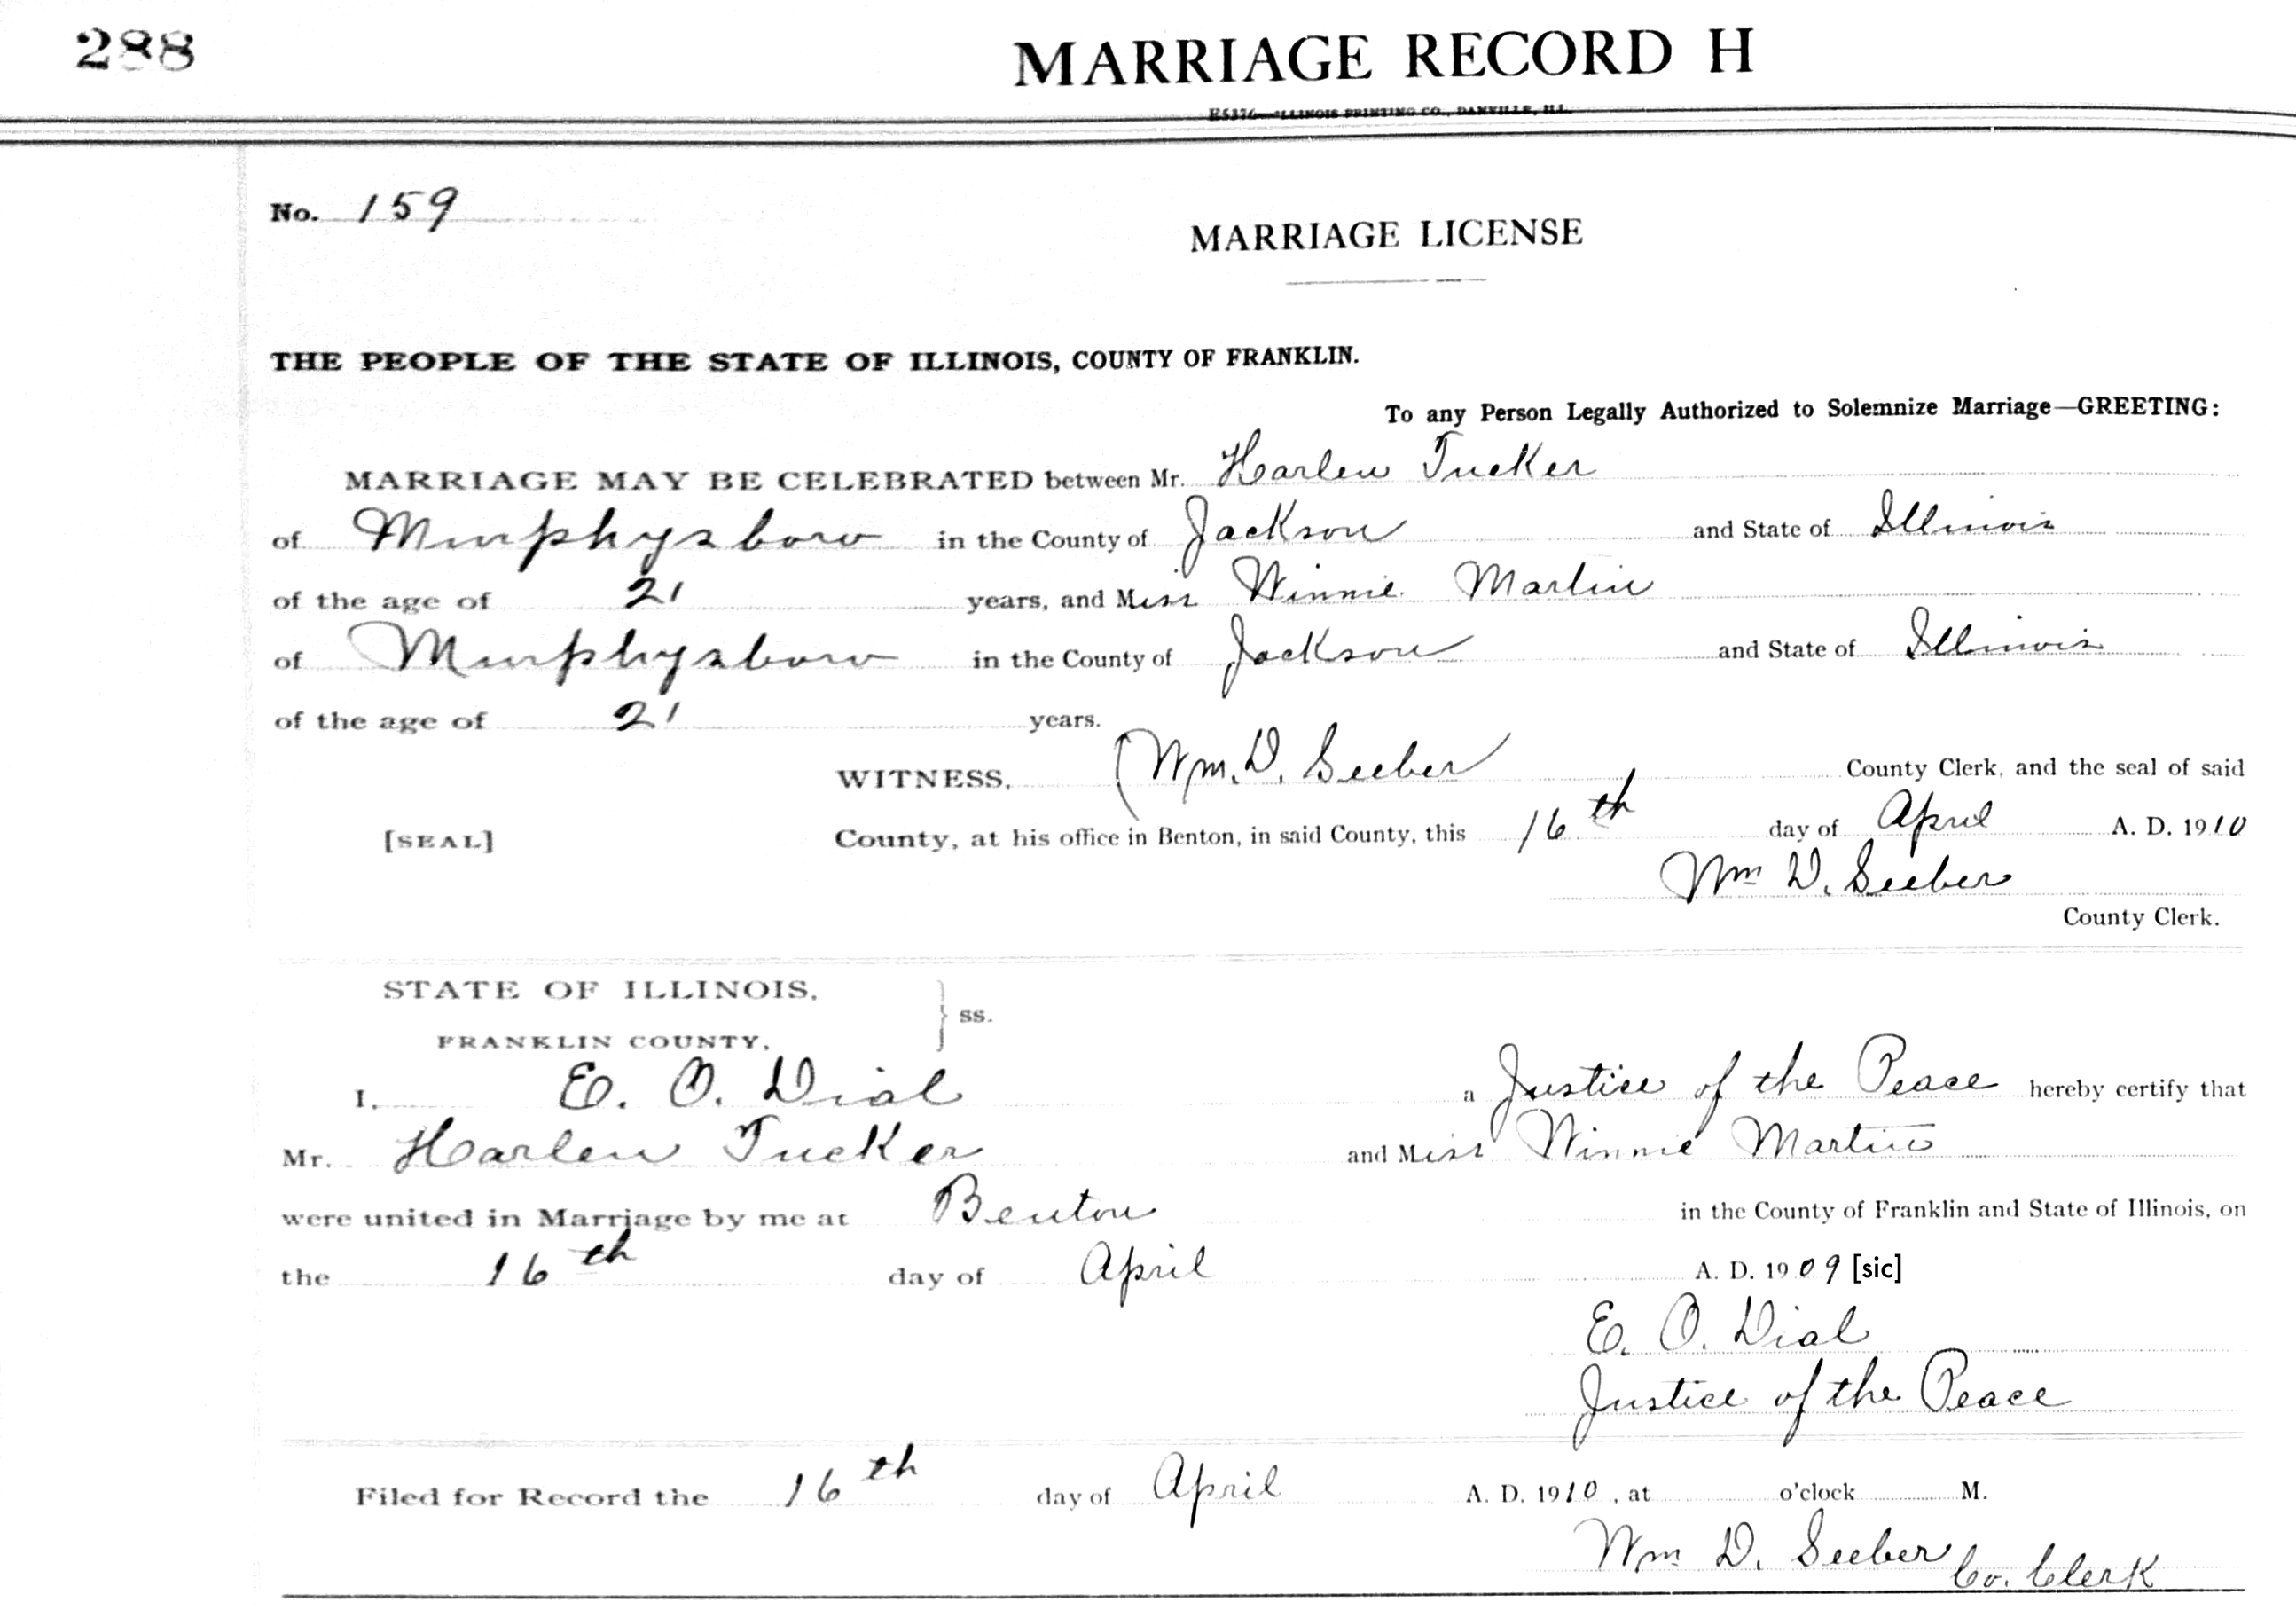 288
MARRIAGE RECORD H
E5376—ILLINOIS PRINTING CO., DANVILLE, ILL.
No. 159
MARRIAGE LICENSE
THE PEOPLE OF THE STATE OF ILLINOIS, COUNTY OF FRANKLIN.
To any Person Legally Authorized to Solemnize Marriage—GREETING:
MARRIAGE MAY BE CELEBRATED between Mr. Harlen Tucker
of Murphysboro in the County of Jackson and State of Illinois
of the age of 21 years, and Miss Winnie Martin
of Murphysboro in the County of Jackson and State of Illinois
of the age of 21 years.
WITNESS, Wm. D. Seeber County Clerk, and the seal of said
[SEAL] County, at his office in Benton, in said County, this 16th day of April A. D. 1910
Wm D. Seeber
County Clerk.
STATE OF ILLINOIS,
FRANKLIN COUNTY, } ss.
I, E. O. Dial a Justice of the Peace hereby certify that
Mr. Harlen Tucker and Miss Winnie Martin
were united in Marriage by me at Benton in the County of Franklin and State of Illinois, on
the 16th day of April A. D. 1909 [sic]
E. O. Dial
Justice of the Peace
Filed for Record the 16th day of April A. D. 1910, at o'clock M.
Wm D. Seeber Co. Clerk